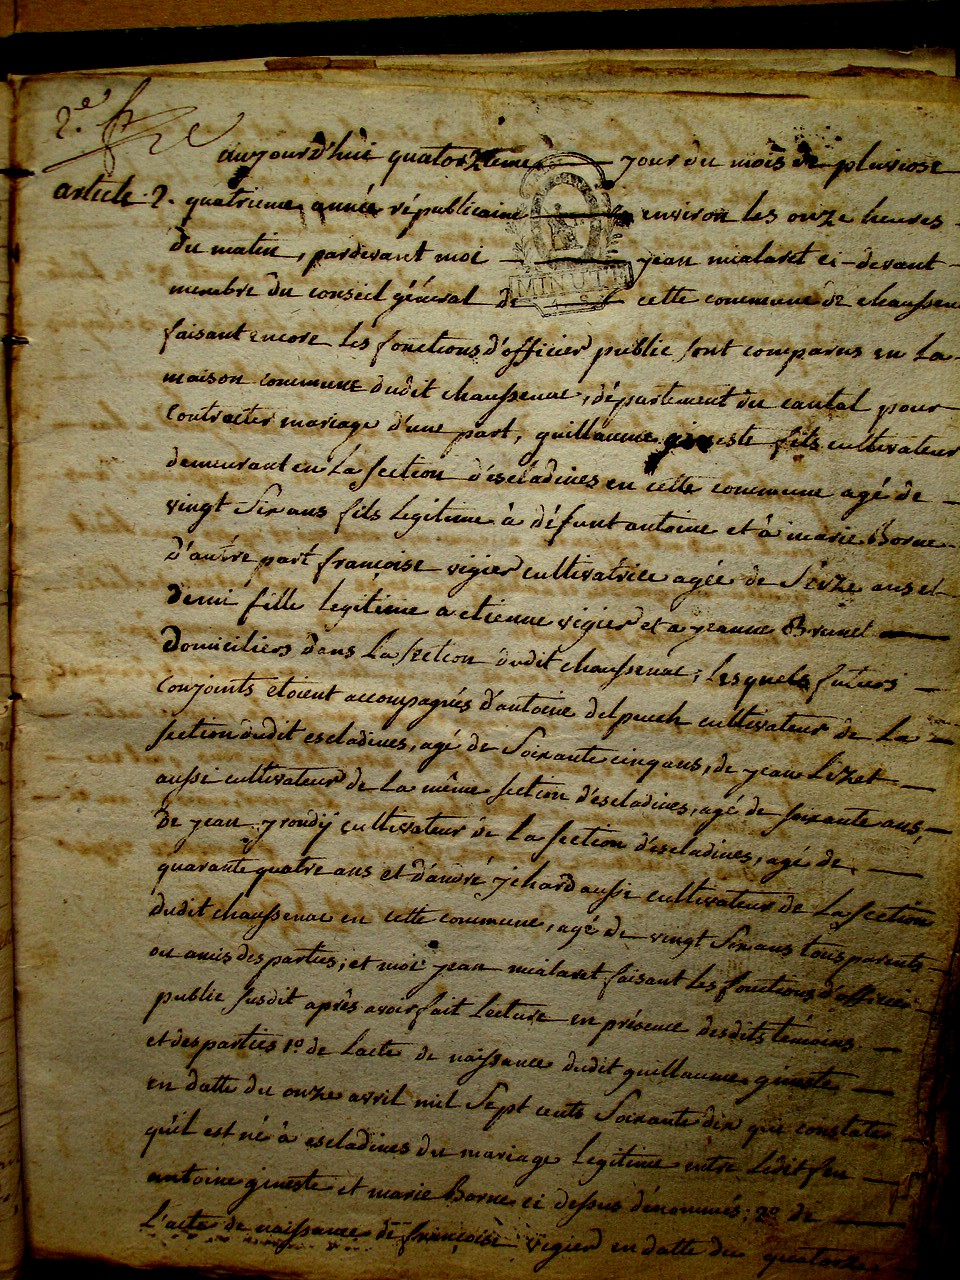 2.e
aujourd'hui quatorzieme jour du mois de pluviose
article 2. quatrieme année républicaine environ les onze heures
MINUTE
du matin, pardevant moi jean mialaret ci-devant
membre du conseil général de cette commune de chaussenac
faisant encore les fonctions d'officier public sont comparus en la
maison commune dudit chaussenac, département du cantal pour
contracter mariage d'une part, guillaume gineste fils cultivateur
demeurant en la section d'escladines en cette commune agé de
vingt six ans fils legitime à défunt antoine et à marie Borne
d'autre part françoise vigier cultivatrice agée de seize ans et
demi fille legitime a etienne vigier et a jeanne Brunet
domiciliers dans la section dudit chaussenac; lesquels futurs
conjoints etoient accompagnés d'antoine delpeuch cultivateur de la
section dudit escladines, agé de soixante cinq ans, de jean Lizet
aussi cultivateur de la même section d'escladines, agé de soixante ans,
de jean cultivateur de la section d'escladines, agé de
quarante quatre ans et d'andré aussi cultivateur de la section
dudit chaussenac en cette commune, agé de vingt six ans tous parents
ou amis des parties; et moi jean mialaret faisant les fonctions d'officier
public susdit après avoir fait lecture en présence desdits témoins
et des parties 1.o de l'acte de naissance dudit guillaume gineste
en datte du onze avril mil sept cents soixante dix qui constate
qu'il est né à escladines du mariage legitime entre ledit feu
antoine gineste et marie Borne ci dessus dénommés; 2.o de
l'acte de naissance de françoise vigier en datte du quatorze